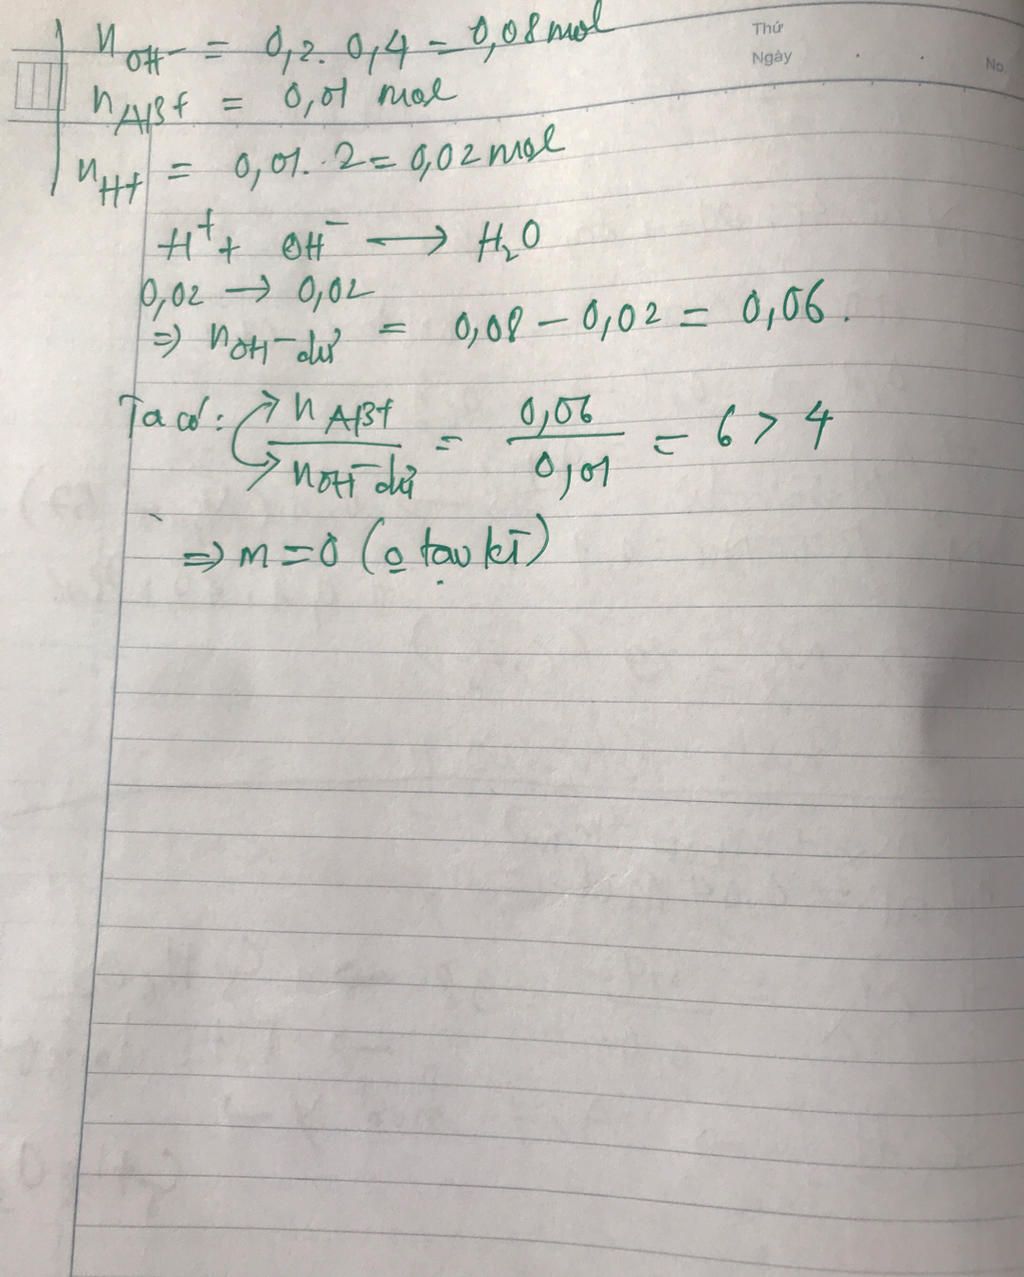 n OH⁻ = 0,2. 0,4 = 0,08 mol
Thứ
Ngày
No.
n Al3+ = 0,01 mol
n H+ = 0,01. 2 = 0,02 mol
H⁺ + OH⁻ → H₂O
0,02 → 0,02
⇒ n OH⁻ dư = 0,08 − 0,02 = 0,06.
Ta có: n Al3+ / n OH⁻ dư = 0,06 / 0,01 = 6 > 4
⇒ m = 0 (o tạo kt)